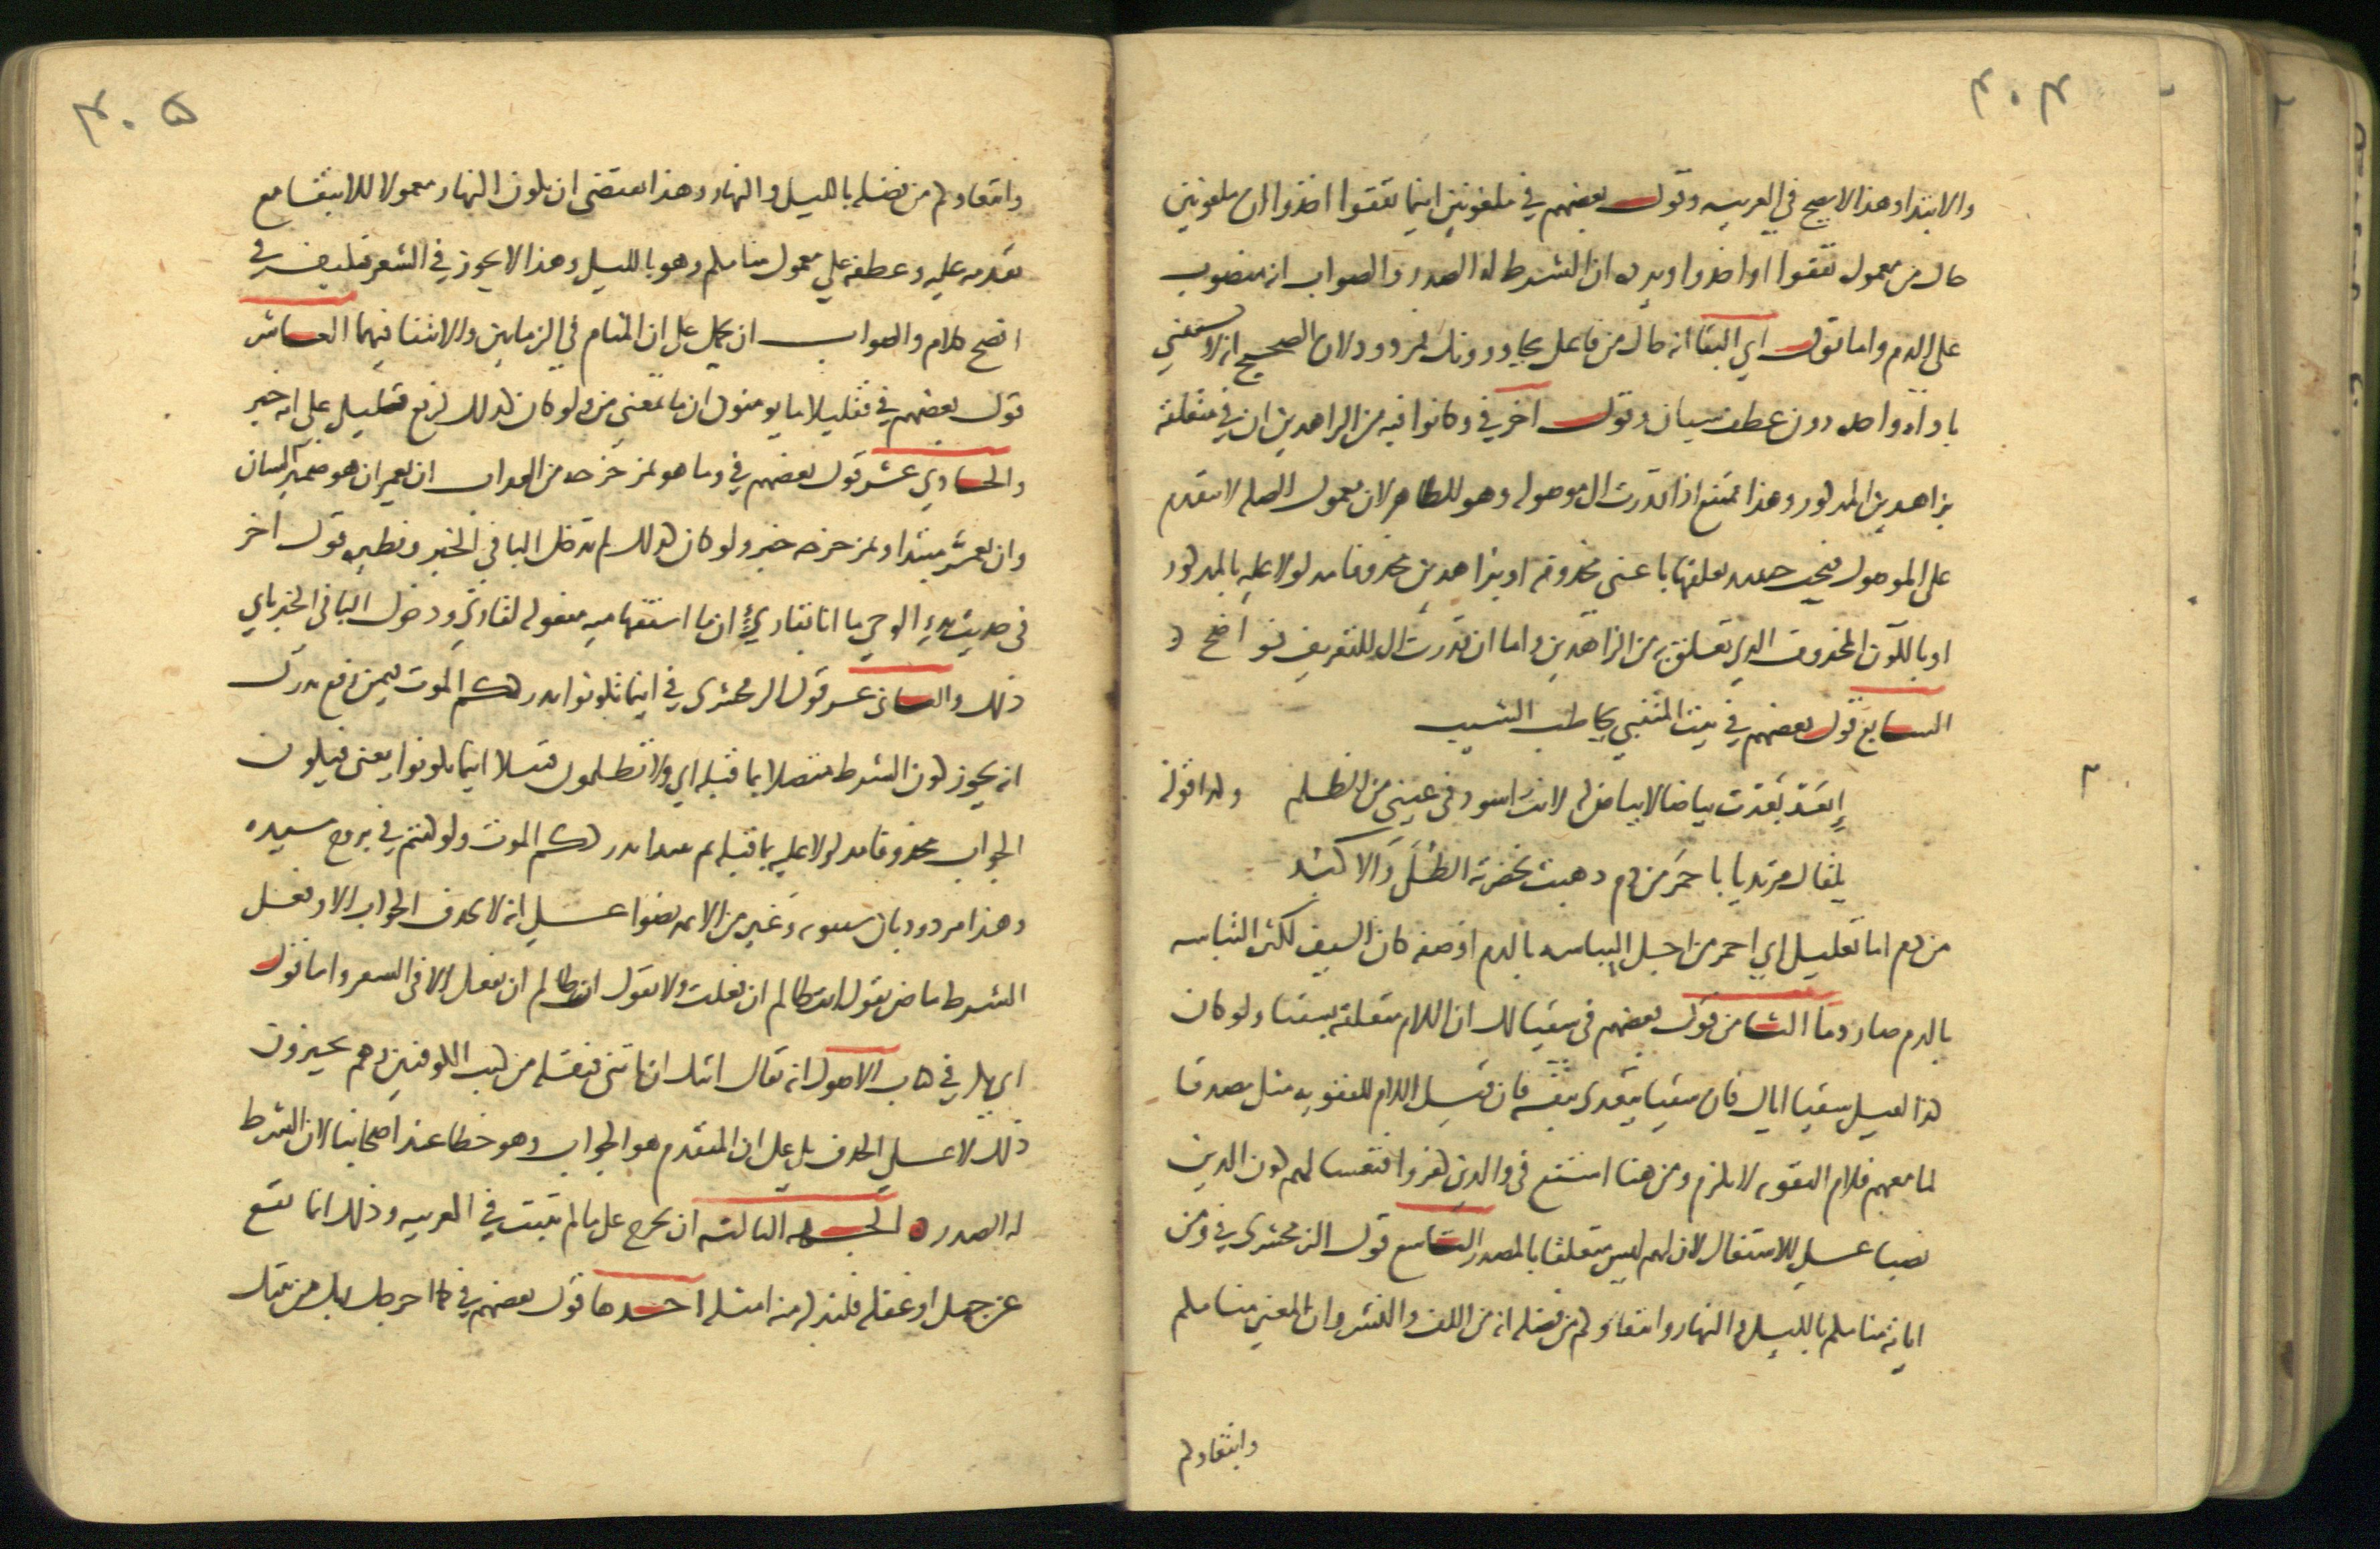 ٣٠٤
والابتدا وهذا لا يصح في العربيه وقول بعضهم في ملعونين اينما ثقفوا اخذوا ان ملعونين
حال من معمول ثقفوا او اخذوا ويرده ان الشرط له الصدر والصواب انه منصوب
على الذم واما قول ابي البقا انه حال من فاعل يجاورونك فمردود لان الصحيح انه لا يستثنى
باداة واحده دون عطف شيان وقول اخر في وكانوا فيه من الزاهدين ان في متعلقة
بزاهدين المذكور وهذا ممتنع اذا قدرت ال موصوله وهو الظاهر لان معمول الصله لا يتقدم
على الموصول فيجب حينئذ تعلقها باعني محذوفه او بزاهدين محذوفا مدلولا عليه بالمذكور
او بالكون المحذوف الذي تعلق به من الزاهدين واما ان قدرت ال للتعريف فواضح
السابع قول بعضهم في بيت المتنبي يخاطب الشيب
إبعَد بَعِدت بياضا لا بياض له لانت اسود في عيني من الظلم ولذا قوله
يلقاك مرتديا باحمر من دم ذهبت بخضرته الطُّلَى والاكبُد
من دم اما تعليل اي احمر من اجل التباسه بالدم او صفه كان السيف لكثرة التباسه
بالدم صار دما الثامن قول بعضهم في سقيا لك ان اللام متعلقة بسقيا ولو كان
كذا لقيل سقيا اياك فان سقيا يتعدى بنفسه فان قيل اللام للتقويه مثل مصدقا
لما معهم فلام التقويه لا تلزم ومن هنا امتنع في والذين كفروا فتعسا لهم كون الذين
نصبا على الاشتغال لان لهم ليس متعلقا بالمصدر التاسع قول الزمخشري في ومن
اياته منامكم بالليل والنهار وابتغاوكم من فضله انه من اللف والنشر وان المعنى منامكم
وابتغاوكم
٣٠٥
وابتغاوكم من فضله بالليل والنهار وهذا يقتضي ان يكون النهار معمولا للابتغا مع
تقدمه عليه وعطفه على معمول منامكم وهو بالليل وهذا لا يجوز في الشعر فكيف في
افصح كلام والصواب ان يحمل على ان المنام في الزمانين والابتغا فيهما العاشر
قول بعضهم في فقليلا ما يومنون ان ما بمعنى من ولو كان كذلك لرفع قليل على انه خبر
والحادي عشر قول بعضهم في وما هو بمزحزحه من العذاب ان يعمر ان هو ضمير الشان
وان يعمر مبتدا وبمزحزحه خبر ولو كان كذلك لم تدخل البا في الخبر ونظيره قول اخر
في حديث بدء الوحي ما انا بقاري ان ما استفهاميه مفعوله لقاري ودخول البا في الخبر يابي
ذلك والثاني عشر قول الزمخشري في اينما تكونوا يدرككم الموت فيمن رفع يدرك
انه يجوز كون الشرط متصلا بما قبله اي ولا تظلمون فتيلا اينما تكونوا يعني فيكون
الجواب محذوفا مدلولا عليه بما قبله ثم يبتدا يدرككم الموت ولو كنتم في بروج مشيده
وهذا مردود بان سيبويه وغيره من الايمه نصوا على انه لا يحذف الجواب الا وفعل
الشرط ماض تقول انت ظالم ان فعلت ولا تقول انت ظالم ان تفعل الا في الشعر واما قول
ابي بكر في كتاب الاصول انه يقال اتيك ان تاتني فنقله من كتب الكوفيين وهم يجيزون
ذلك لا على الحذف بل على ان المتقدم هو الجواب وهو خطا عند اصحابنا لان الشرط
له الصدر الجهه الثالثه ان يخرج على ما لم يثبت في العربيه وذلك انما يقع
عن جهل او غفله فلنذكر منه امثله احدها قول بعضهم في كما اخرجك ربك من بيتك